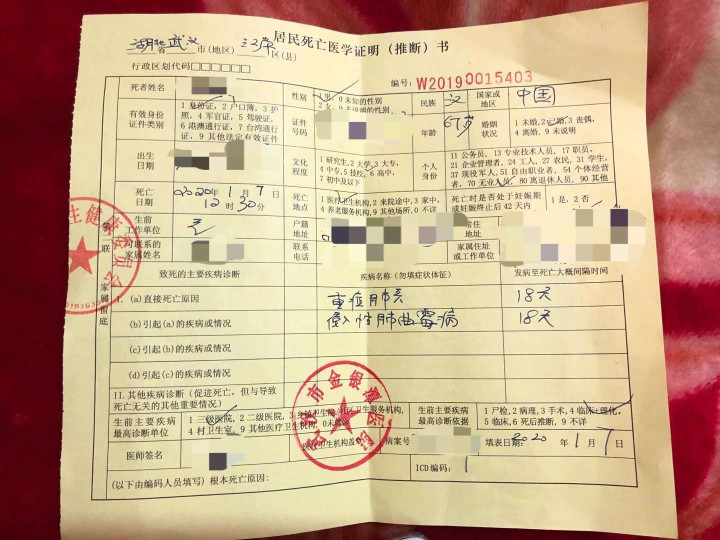 居民死亡医学证明（推断）书
湖北省 武汉市(地区) 江岸区(县)
行政区划代码□□□□□□
编号: W20190015403
死者姓名
性别
1男, 0未知的性别
民族
汉
国家或地区
中国
有效身份证件类别
1身份证, 2户口簿, 3护照, 4军官证, 5驾驶证, 6港澳通行证, 7台湾通行证, 9其他法定有效证件
证件号码
年龄
67岁
婚姻状况
1未婚, 2已婚, 3丧偶, 4离婚, 9未说明
出生日期
文化程度
1研究生, 2大学, 3大专, 4中专, 5技校, 6高中, 7初中及以下
个人身份
11公务员, 13专业技术人员, 17职员, 21企业管理者, 24工人, 27农民, 31学生, 37现役军人, 51自由职业者, 54个体经营者, 70无业人员, 80离退休人员, 90其他
死亡日期
2020年1月7日
12时30分
死亡地点
1医疗卫生机构, 2来院途中, 3家中, 4养老服务机构, 9其他场所, 0不详
死亡时是否处于妊娠期或妊娠终止后42天内
1是, 2否
生前工作单位
无
户籍地址
常住地址
可联系的家属姓名
联系电话
家属住址或工作单位
致死的主要疾病诊断
疾病名称(勿填症状体征)
发病至死亡大概间隔时间
I. (a)直接死亡原因
重症肺炎
18天
(b)引起(a)的疾病或情况
侵入性肺曲霉病
18天
(c)引起(b)的疾病或情况
(d)引起(c)的疾病或情况
II.其他疾病诊断(促进死亡,但与导致死亡无关的其他重要情况)
生前主要疾病最高诊断单位
1三级医院, 2二级医院, 3乡镇卫生院/社区卫生服务机构, 4村卫生室, 9其他医疗卫生机构, 0未就诊
生前主要疾病最高诊断依据
1尸检, 2病理, 3手术, 4临床+理化, 5临床, 6死后推断, 9不详
医师签名
医疗卫生机构盖章
病案号
填表日期: 2020年1月7日
(以下由编码人员填写)根本死亡原因:
ICD编码:
第一联
家属留底
武汉市金银潭医院